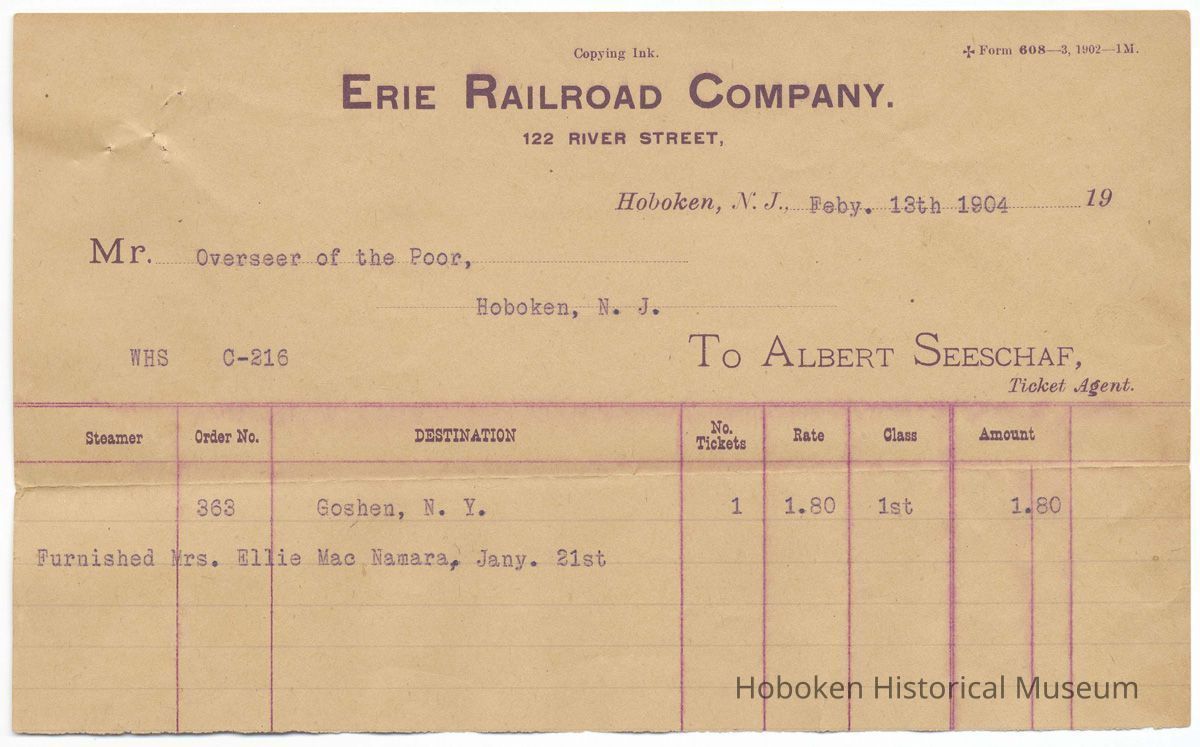 Copying Ink.
✢ Form 608—3, 1902—1M.
ERIE RAILROAD COMPANY.
122 RIVER STREET,
Hoboken, N. J., Feby. 13th 1904 19
Mr. Overseer of the Poor,
Hoboken, N. J.
WHS C-216
TO ALBERT SEESCHAF,
Ticket Agent.
Steamer Order No. DESTINATION No. Tickets Rate Class Amount
363 Goshen, N. Y. 1 1.80 1st 1.80
Furnished Mrs. Ellie Mac Namara, Jany. 21st
Hoboken Historical Museum